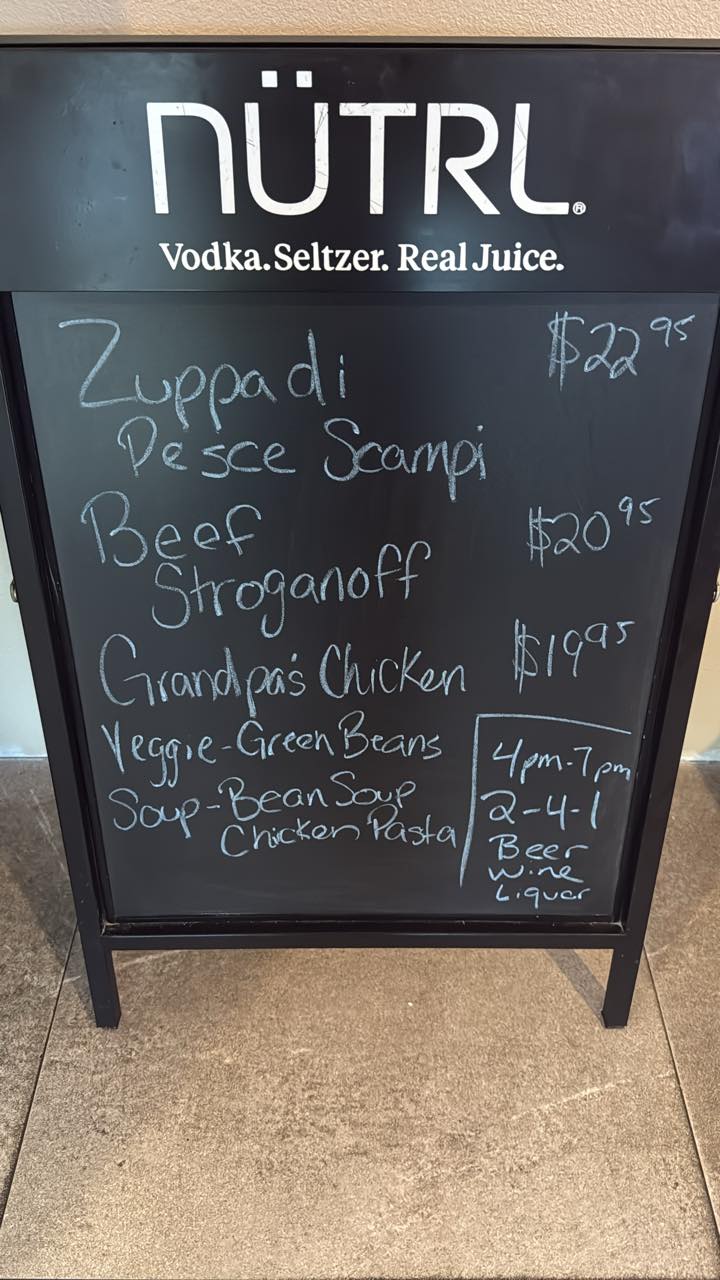 NÜTRL®
Vodka. Seltzer. Real Juice.
Zuppa di $22.95
Pesce Scampi
Beef $20.95
Stroganoff
Grandpa's Chicken $19.95
Veggie-Green Beans
Soup-Bean Soup
Chicken Pasta
4pm-7pm
2-4-1
Beer
Wine
Liquor